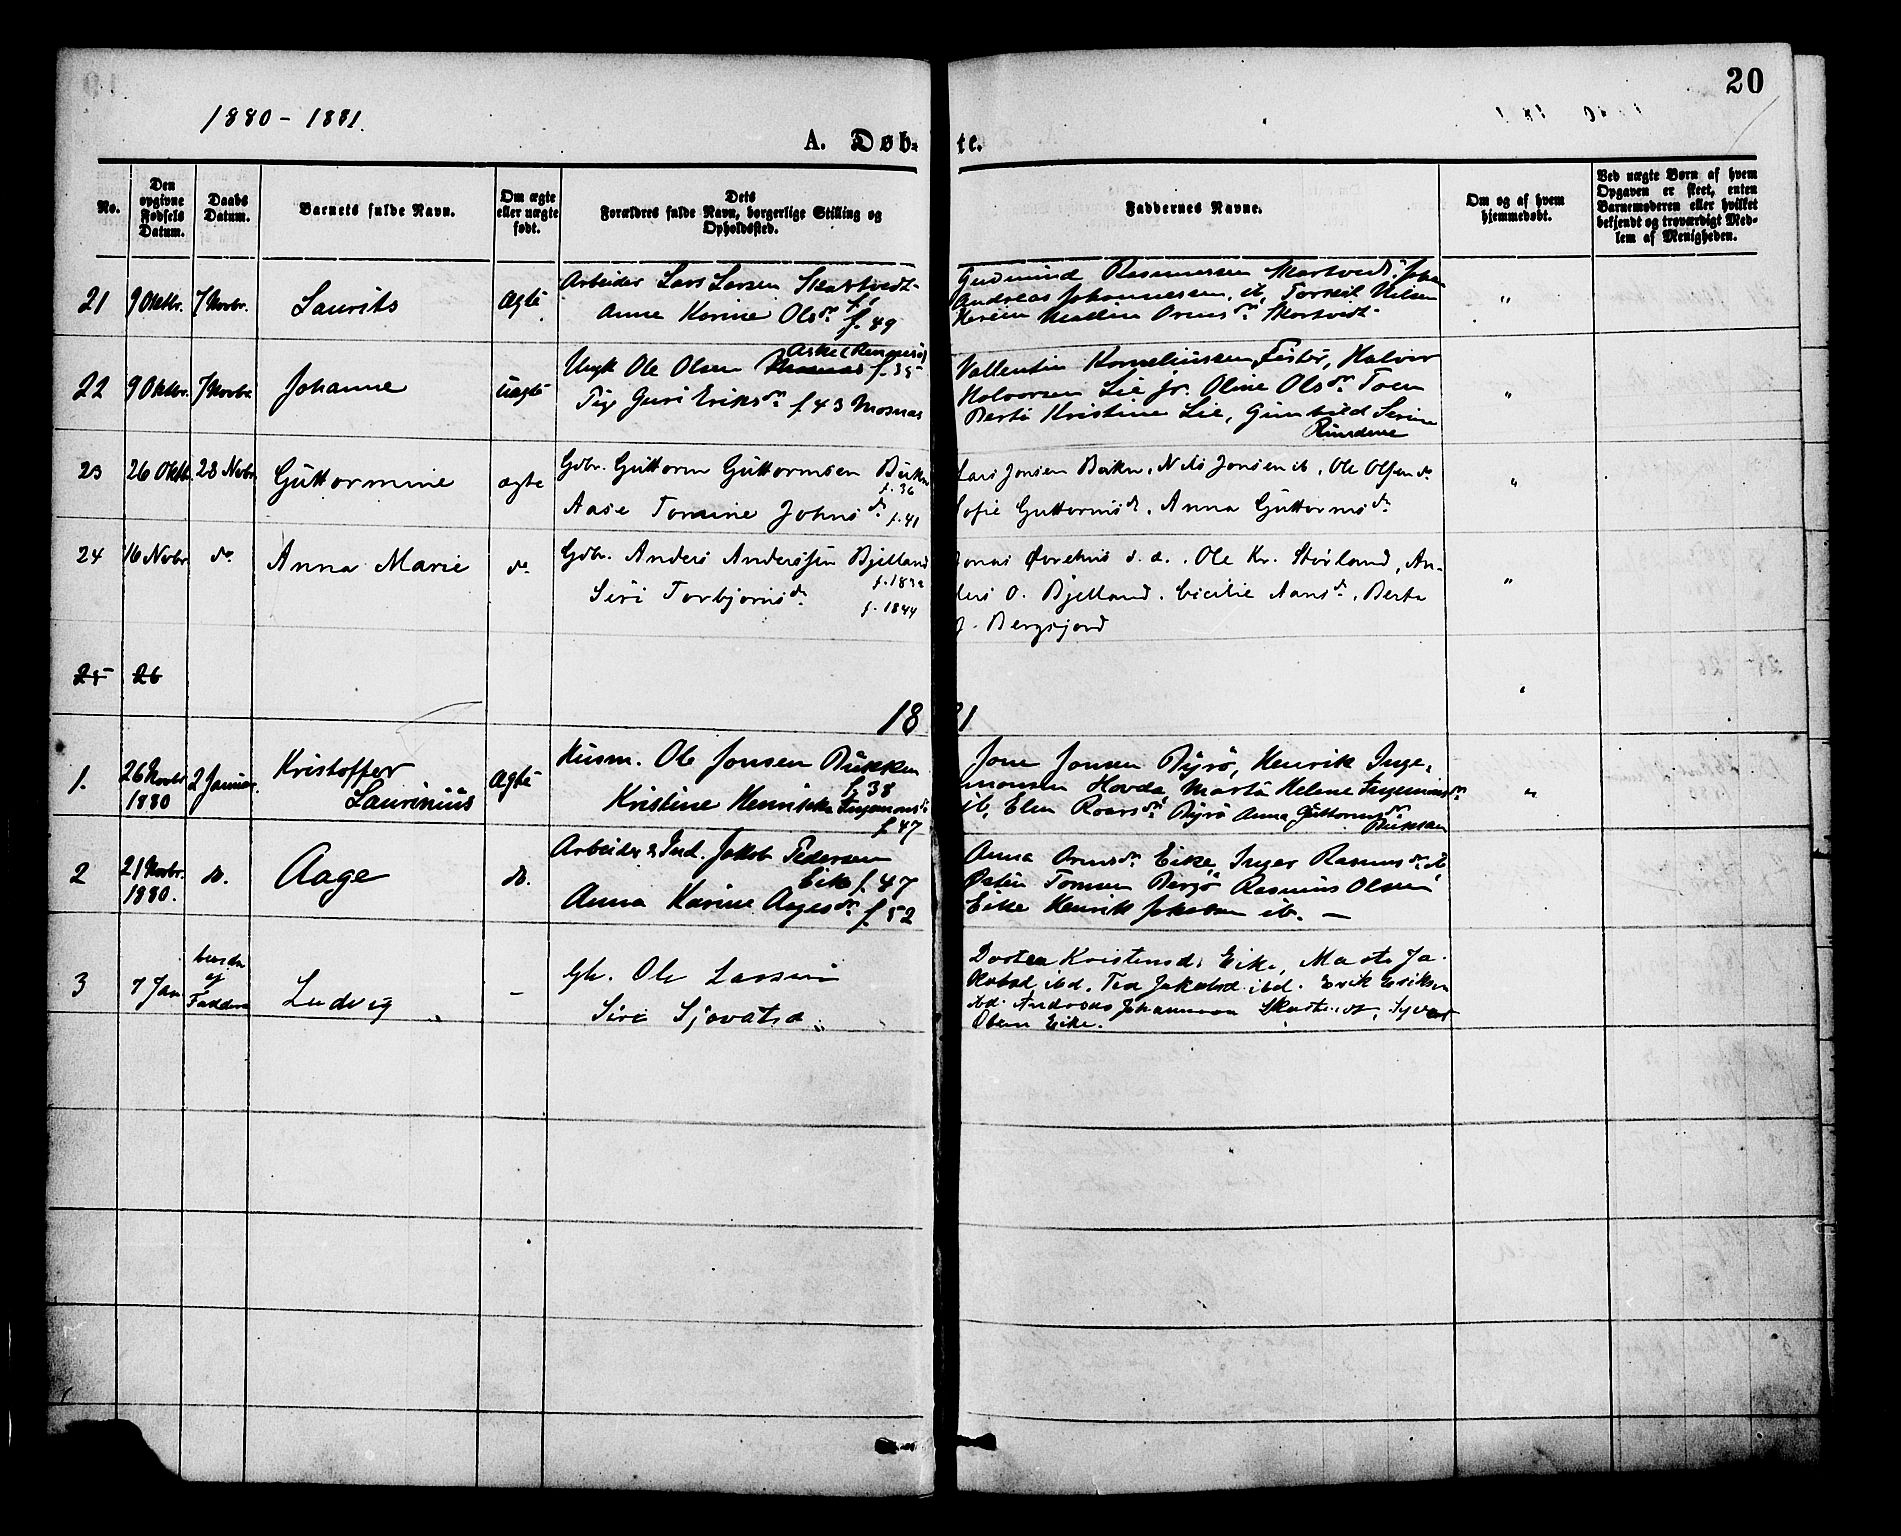 20
1880 - 1881.
A. Døb-te.
No.
Den opgivne Fødsels Datum.
Daabs Datum.
Barnets fulde Navn.
Om ægte eller uægte født.
Dets Forældres fulde Navn, borgerlige Stilling og Opholdssted.
Faddernes Navne.
Om og af hvem hjemmedøbt.
Ved uægte Børn af hvem Opgaven er skeet, enten Barnemoderen eller hvilket bekjendt og troværdigt Medlem af Menigheden.
21 9 Oktbr. 7 Novbr. Laurits Ægte Arbeider Lars Larsen
Anne Karine Olsdr f. 49
Gudmund Rasmussen
Andreas Johannessen, ib,
22 9 Oktbr. 7 Novbr. Johanne uægte Ungk Ole Olsen f. 35
Pig Guri Eriksdr f. 43 Mosnæs
Vallentin Korneliussen, Fister, Halvor
Halvorsen Lie jr. Oline Olsdr
Berte Kristine Lie, Gunhild Serine
23 26 Oktb. 28 Novbr Guttormine ægte Gdbr. Guttorm Guttormsen
f. 36
Aase Tomine Johnsdr f. 41
Lars Jonsen, Nils Jonsen ib, Ole Olsen do
Sofie Guttormsd, Anna Guttormsdr
24 16 Novbr do Anna Marie do Gdbr. Anders Andersen Bjelland
Siri Torbjørnsdr
f. 1844
Ole Kr. Størland, An-
ders O. Bjelland, Berta
Bergsjord
25 26
1881
1. 26 Novbr 1880 2 Januar. Kristoffer Laurinius Ægte Husm. Ole Jonsen Bukken
f. 38
Kristine Henrikke Ingemonsdr
f. 47
Jone Jonsen Byrø, Henrik Inge-
monsen Hovda, Marta Helene Ingemonsdr
ib, Elen Roarsdr Byrø Anna Guttormsdr
2 21 Novbr. 1880. do. Aage do. Arbeider & Ind. Jakob Pedersen
Eike f. 47
Anna Karine Aagesdr f. 52
Anna Ormsdr Eike, Inger Rasmusdr ib
Østen Tomsen Rasmus Olsen
Eike Henrik Jakobsen ib. —
3 7 Jan af Faddere Ludvig - Gb. Ole Larsen
Siri Sjovatsd
Dortea Kristensd. Eike, Marta Ja-
kobsd ibd. Jakobsd ibd. Erik Eriksen
ibd. Andreas Johannesen
Olsen Eike.